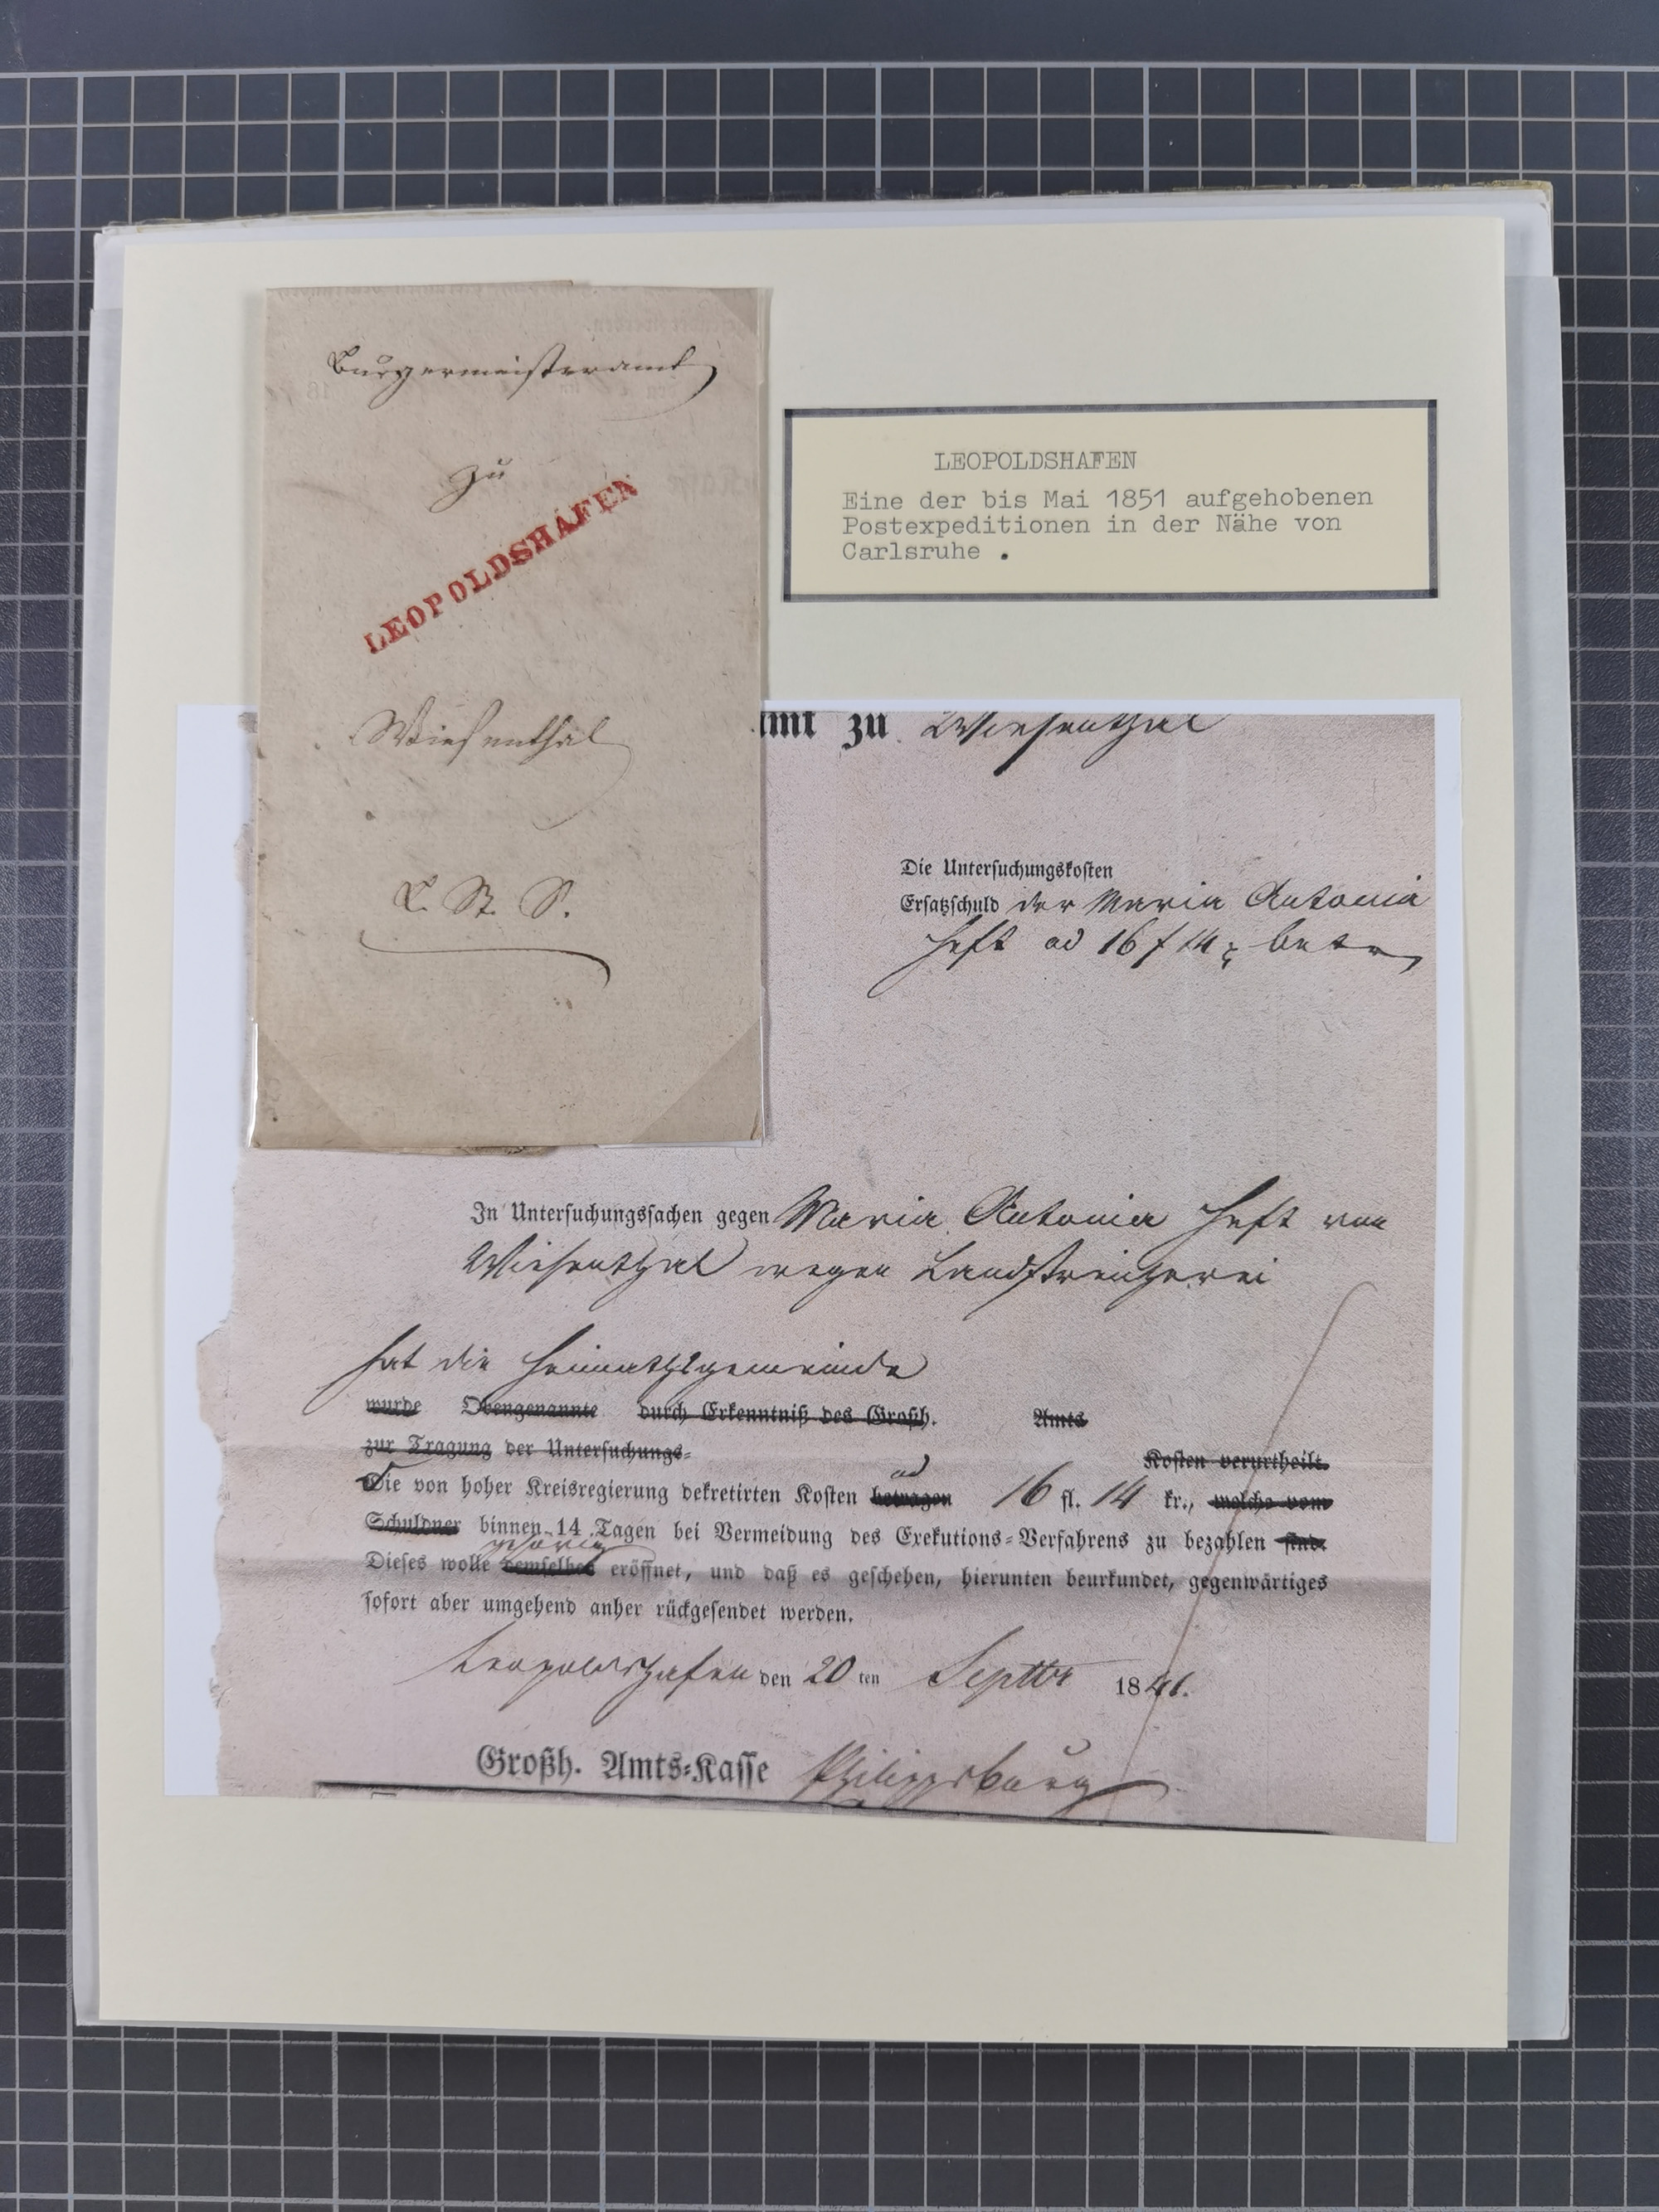 Burgermeisteramt
zu
LEOPOLDSHAFEN
Wiesenthal
LEOPOLDSHAFEN
Eine der bis Mai 1851 aufgehobenen
Postexpeditionen in der Nähe von
Carlsruhe .
amt zu Wiesenthal
Die Untersuchungskosten
Ersatzschuld der Maria Antonia
Heft ad 16 f 14 betr
In Untersuchungssachen gegen Maria Antonia Heft von
Wiesenthal wegen Landstreicherei
hat die Heimathsgemeinde
wurde Obengenannte durch Erkenntniß des Großh. Amts
zur Tragung der Untersuchungs-
Kosten verurtheilt.
ad
Die von hoher Kreisregierung dekretirten Kosten betragen 16 fl. 14 kr., welche vom
Schuldner binnen 14 Tagen bei Vermeidung des Exekutions-Verfahrens zu bezahlen sind.
gehörig
Dieses wolle demselben eröffnet, und daß es geschehen, hierunten beurkundet, gegenwärtiges
sofort aber umgehend anher rückgesendet werden.
Leopoldshafen den 20 ten Septbr 1841.
Großh. Amts-Kasse Philippsburg